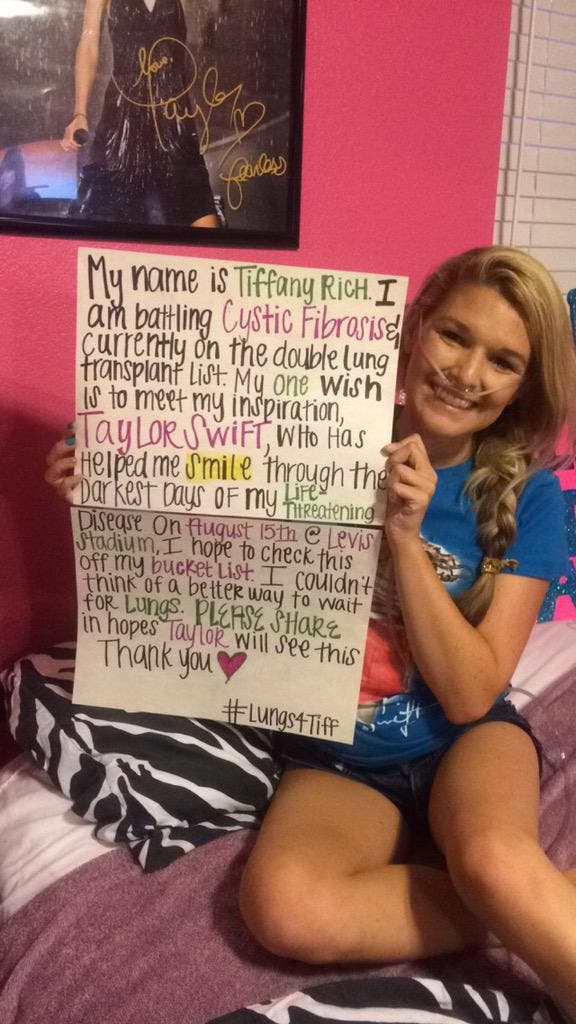 Love,
Taylor
fearless
My name is Tiffany Rich. I
am battling Cystic Fibrosis &
currently on the double lung
transplant list. My one wish
is to meet my inspiration,
TAYLOR SWIFT, who has
Helped me smile through the
Darkest Days of my Life-
Threatening
Disease On August 15th @ Levis
Stadium, I hope to check this
off my bucket list. I couldn't
think of a better way to wait
for Lungs. PLEASE SHARE
in hopes Taylor will see this
Thank you
#Lungs4Tiff
Swift